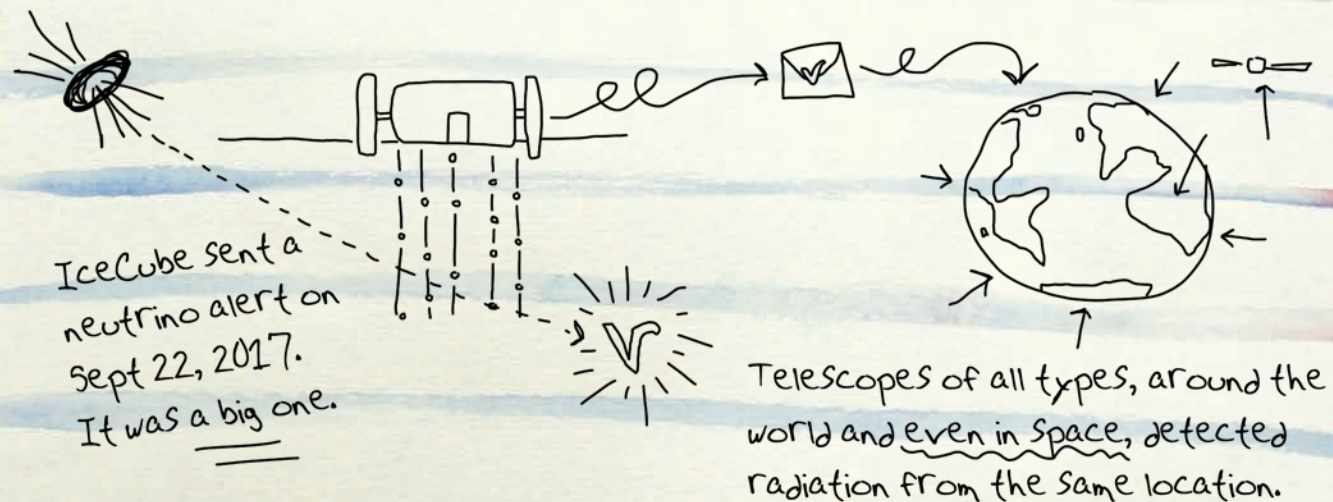 IceCube sent a
neutrino alert on
Sept 22, 2017.
It was a big one.
Telescopes of all types, around the
world and even in space, detected
radiation from the same location.